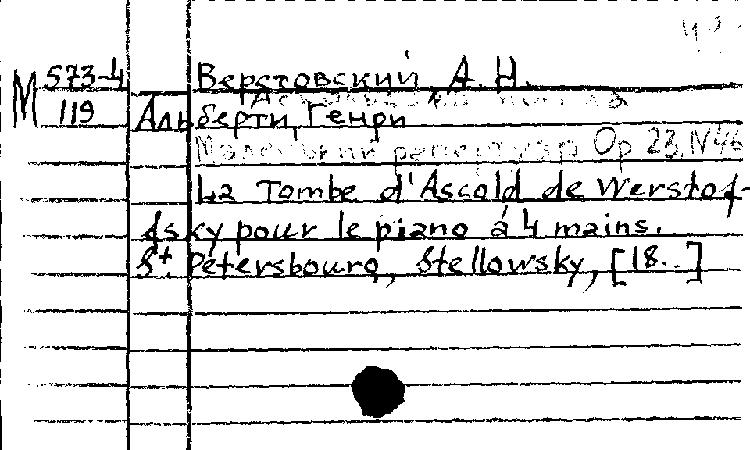 М 573-4 Верстовский, А. Н.
119 Альберти, Генри
Ор 23, N46
La Tombe d'Ascold de Werstof-
fsky pour le piano á 4 mains.
St. Pétersbourg, Stellowsky, [18..]